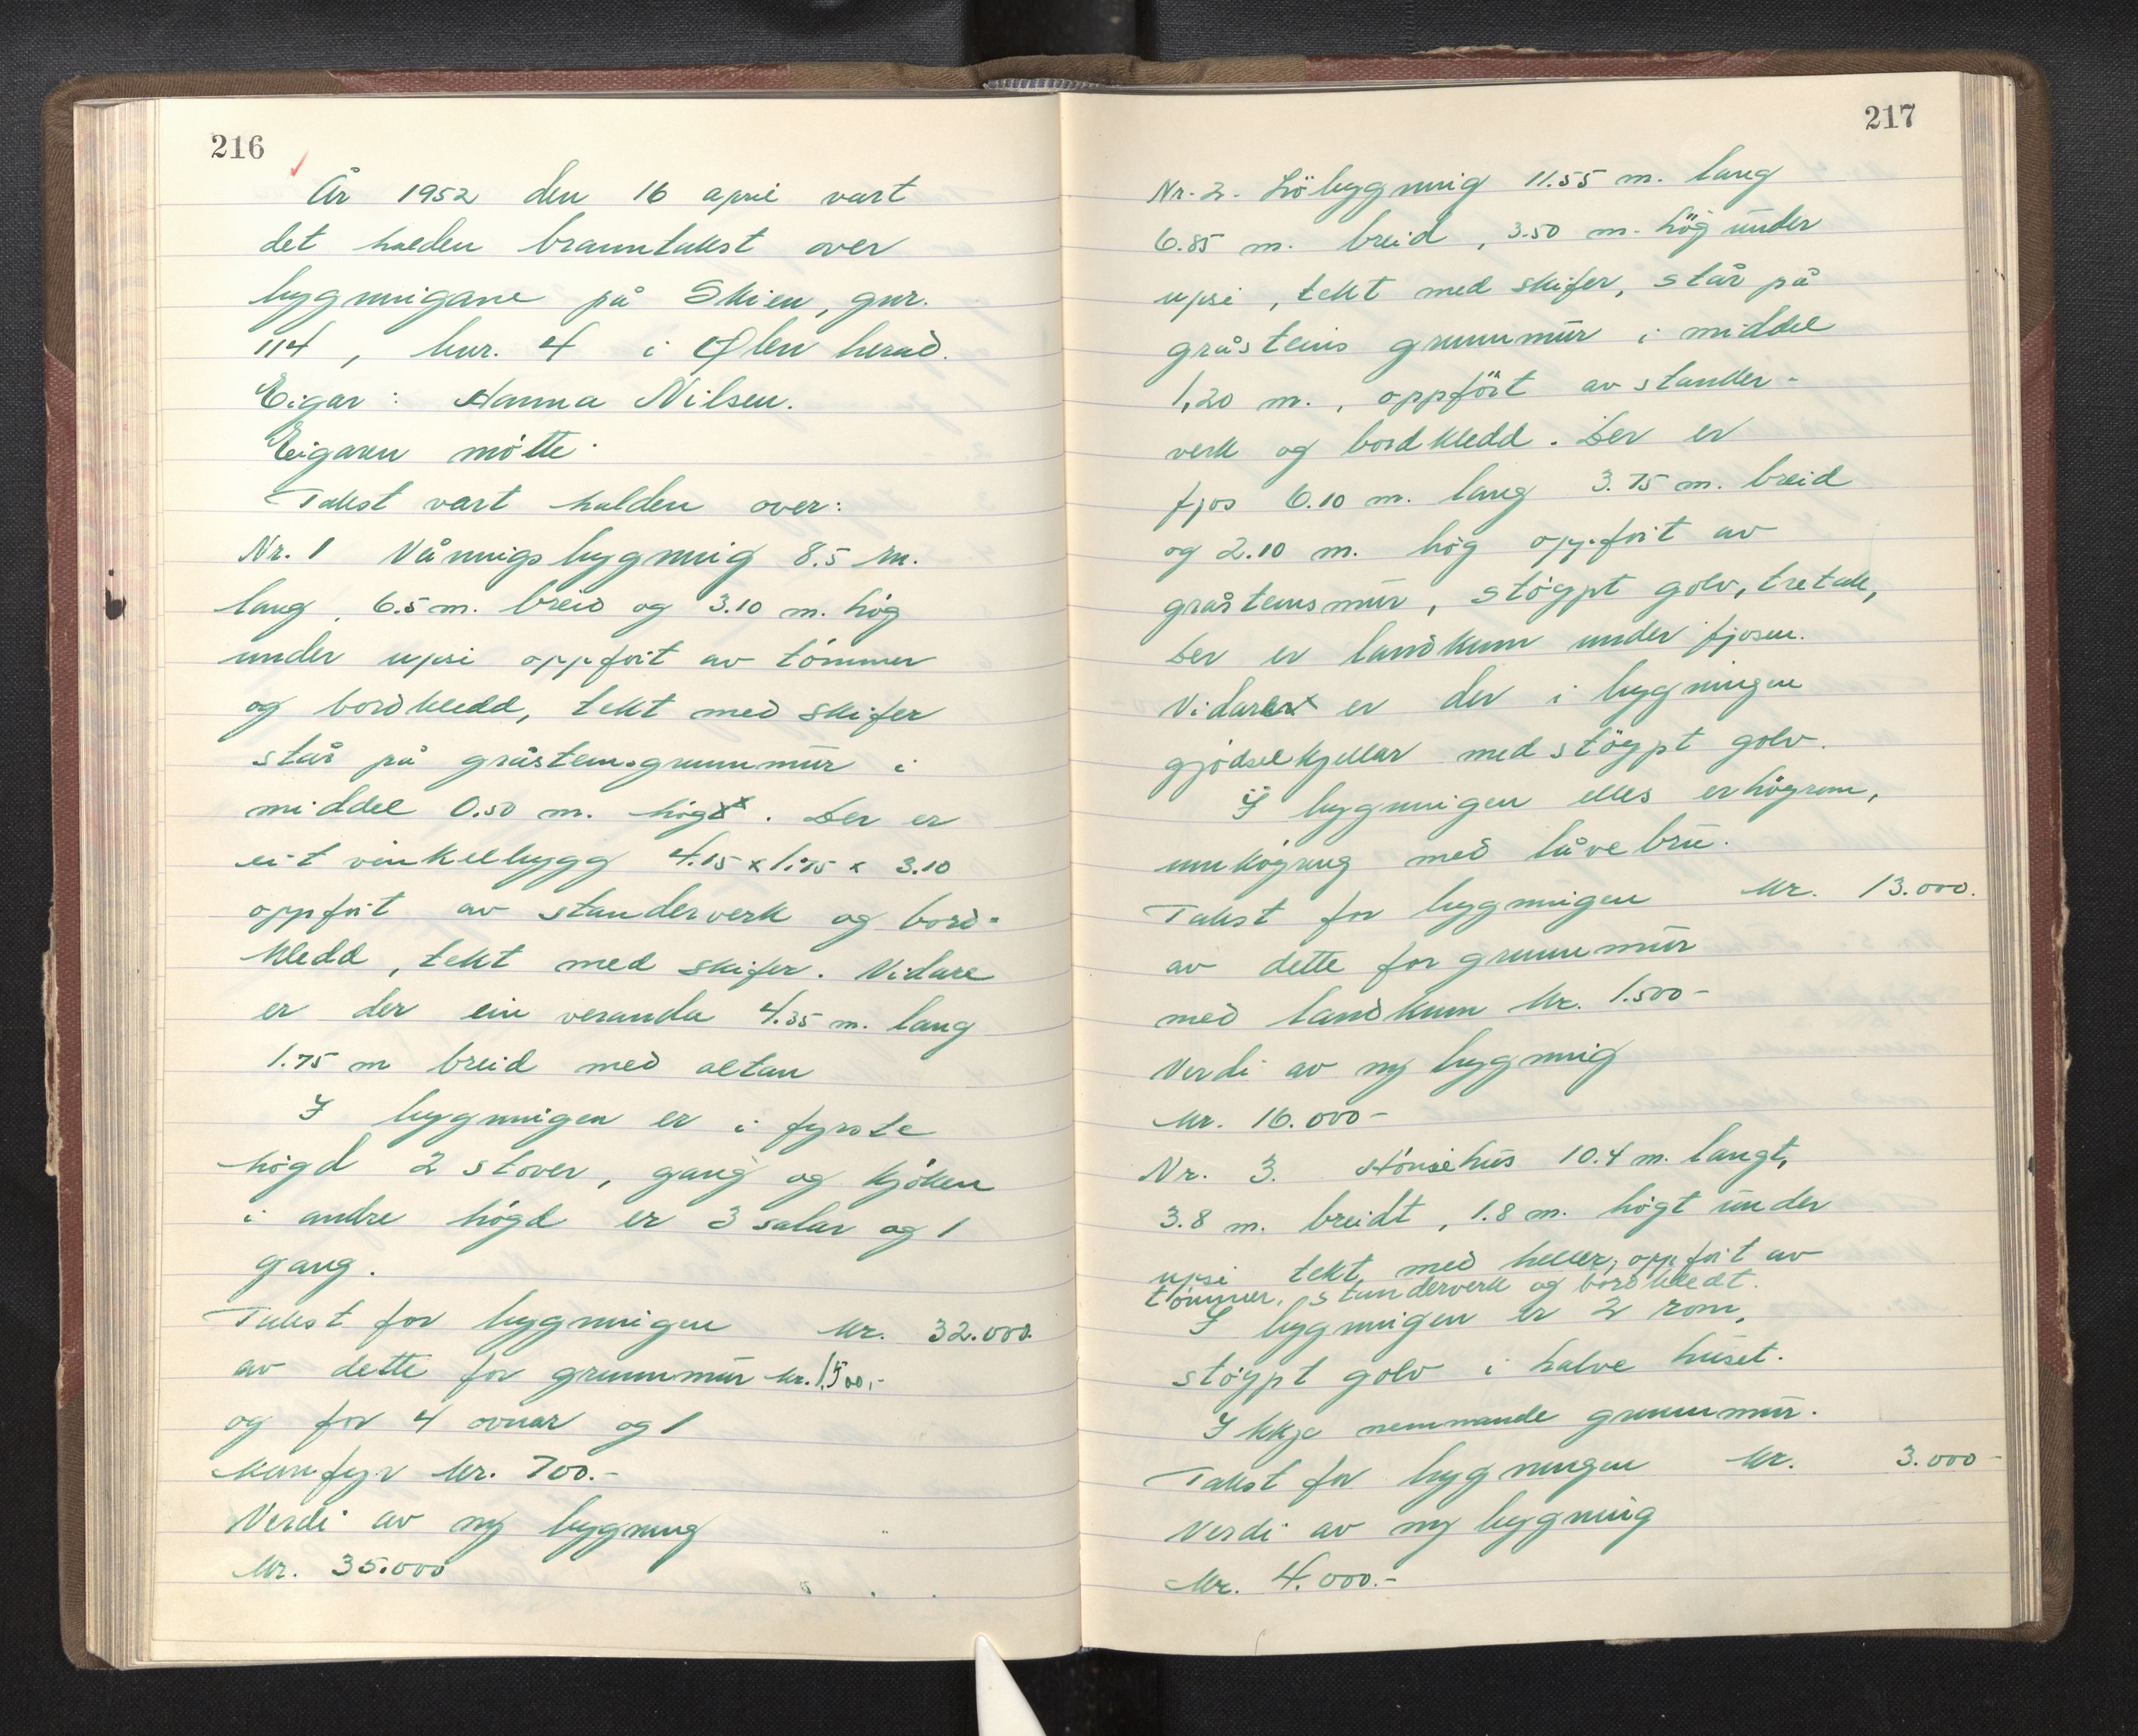 216
År 1952 den 16 april vart
det halden branntakst over
bygningane på Skien, gnr.
114, bnr. 4 i Ølen herad.
Eigar: Hanna Nilsen.
Eigaren møtte.
Takst vart halden over:
Nr. 1 Våningsbygning 8.5 m.
lang, 6.5 m. breid og 3.10 m. høg
under upsi oppført av tømmer
og bordkledd, tekt med skifer
står på gråsteinsgrunnmur i
middel 0.50 m. høg. Der er
eit vinkelbygg 4.15 x 1.75 x 3.10
oppført av standerverk og bord-
kledd, tekt med skifer. Vidare
er der ein veranda 4.35 m. lang
1.75 m breid med altan
I bygningen er i fyrste
høgd 2 stover, gang og kjøken
i andre høgd er 3 salar og 1
gang.
Takst for bygningen kr. 32.000.
av dette for grunnmur kr. 1.500,-
og for 4 ovnar og 1
komfyr kr. 700.-
Verdi av ny bygning
kr. 35.000
217
Nr. 2. Löbygning 11.55 m. lang
6.85 m. breid, 3.50 m. høg under
upsi, tekt med skifer, står på
gråsteins grunnmur i middel
1,20 m., oppført av stander-
verk og bordkledd. Der er
fjos 6.10 m. lang 3.75 m. breid
og 2.10 m. høg oppført av
gråsteinsmur, støypt golv, tretak,
Der er landkum under fjosen.
Vidare er der i bygningen
gjødselkjellar med støypt golv.
I bygningen elles er høyrom,
innkøyring med låvebru.
Takst for bygningen kr. 13.000.
av dette for grunnmur
med landkum kr. 1.500-
Verdi av ny bygning
kr. 16.000-
Nr. 3. Hønsehus 10.4 m. langt,
3.8 m. breidt, 1.8 m. høgt under
upsi tekt med heller, oppført av
tømmer, standerverk og bordkledt.
I bygningen er 2 rom,
støypt golv i halve huset.
Ikkje nemnande grunnmur.
Takst for bygningen kr. 3.000-
Verdi av ny bygning
kr. 4.000.-